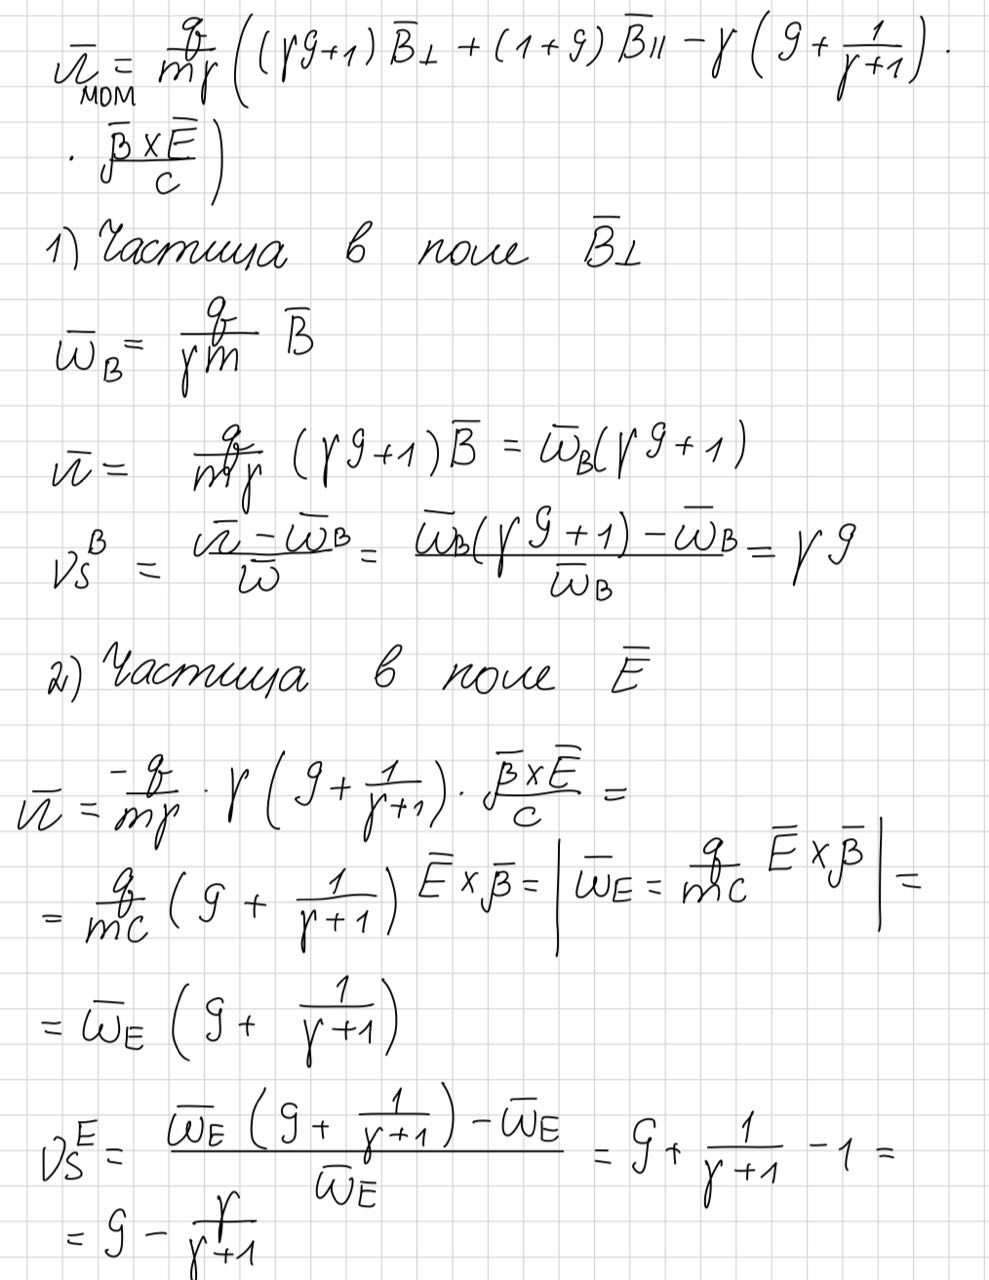 Ω̅_МДМ = q/(mγ) ((γG+1) B̅⊥ + (1+G) B̅∥ − γ (G + 1/(γ+1)) ·
· (β̅ × E̅)/c)
1) Частица в поле B̅⊥
ω̅_B = q/(γm) B̅
Ω̅ = q/(mγ) (γG+1) B̅ = ω̅_B (γG+1)
ν_S^B = (Ω̅ − ω̅_B)/ω̅ = (ω̅_B(γG+1) − ω̅_B)/ω̅_B = γG
2) Частица в поле E̅
Ω̅ = −q/(mγ) · γ (G + 1/(γ+1)) · (β̅ × E̅)/c =
= q/(mc) (G + 1/(γ+1)) E̅ × β̅ = | ω̅_E = q/(mc) E̅ × β̅ | =
= ω̅_E (G + 1/(γ+1))
ν_S^E = (ω̅_E (G + 1/(γ+1)) − ω̅_E)/ω̅_E = G + 1/(γ+1) − 1 =
= G − γ/(γ+1)